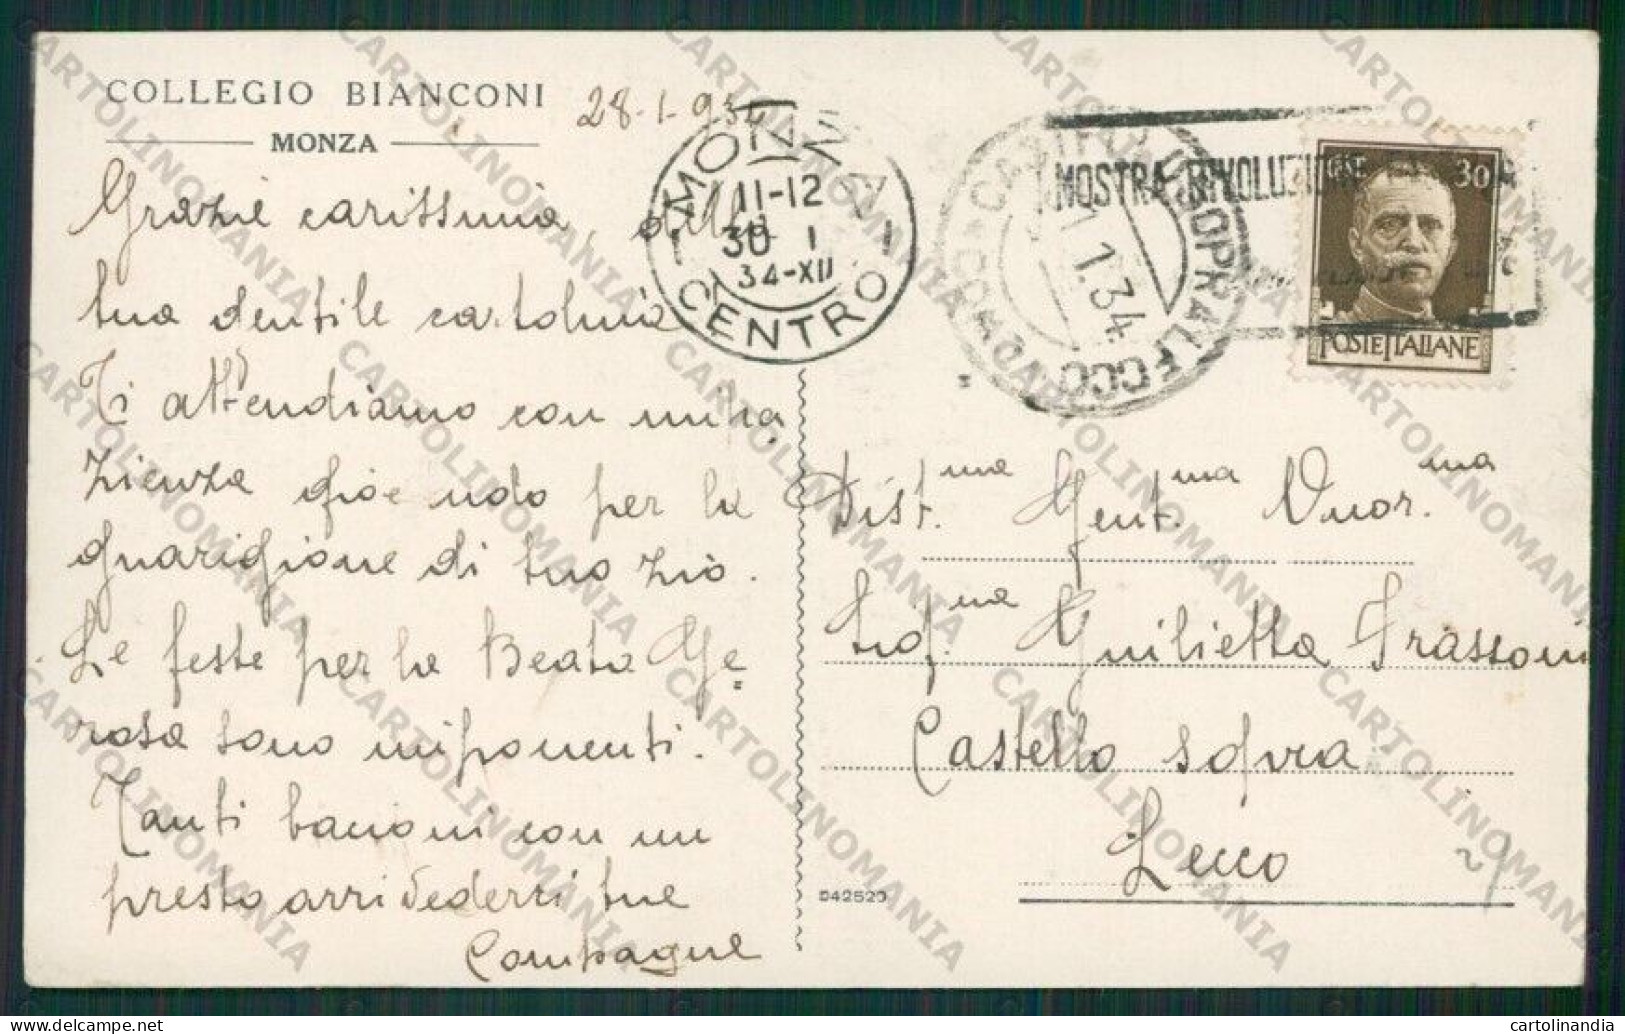 COLLEGIO BIANCONI
MONZA
28-1-934
Grazie carissima, della
tua gentile cartolina
Ti attendiamo con impa
zienza gioendo per la
guarigione di tuo zio.
Le feste per la Beata Ge=
rosa sono imponenti.
Tanti bacioni con un
presto arrivederci, tue
Compagne
MONZA
11-12
30 I
34-XII
CENTRO
MOSTRA RIVOLUZIONE
CASTELLO SOPRA LECCO
1.1.34
30
POSTE ITALIANE
Dist.ma Gent.ma Onor.ma
Sig.na Giulietta Frassoni
Castello sopra
Lecco
042520
CARTOLINOMANIA
cartolinandia